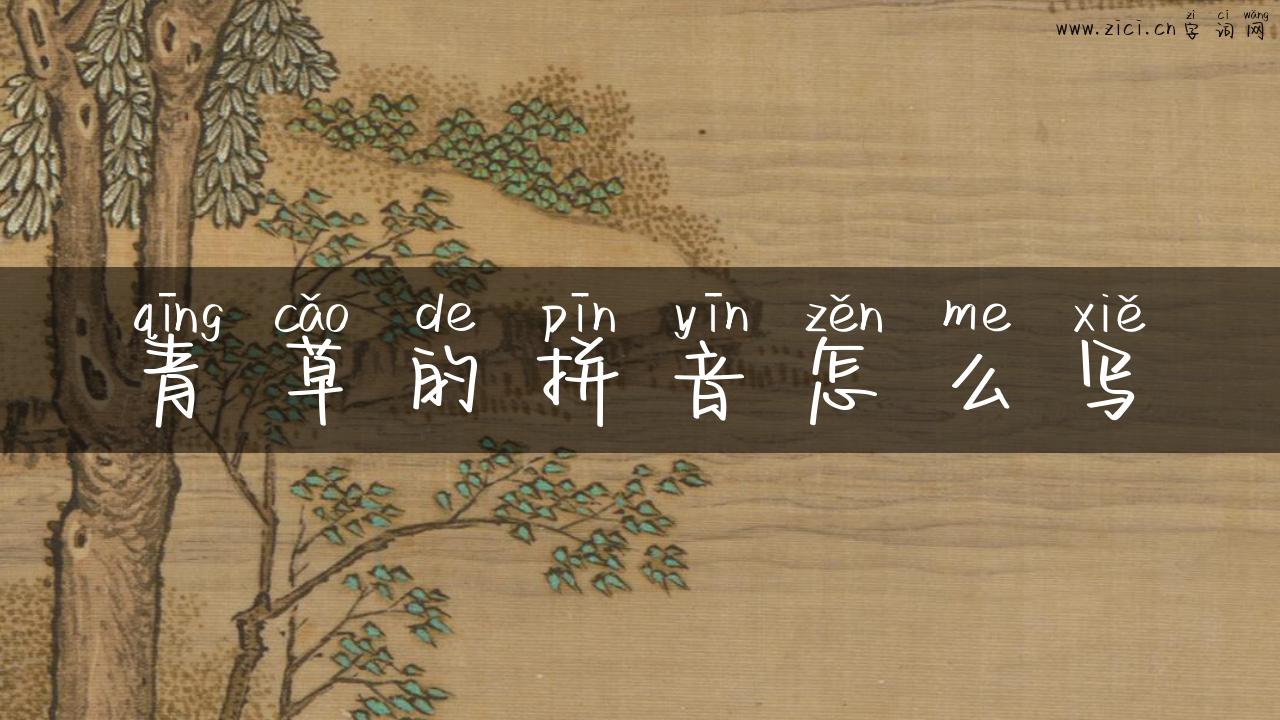 zì cí wǎng
www.zici.cn 字词网
qīng cǎo de pīn yīn zěn me xiě
青草的拼音怎么写